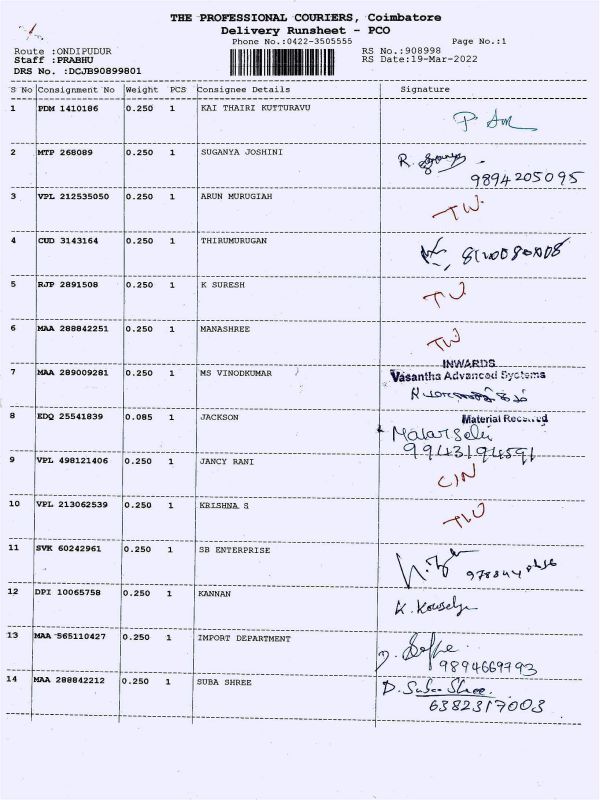 THE PROFESSIONAL COURIERS, Coimbatore
Delivery Runsheet - PCO
Phone No.:0422-3505555 Page No.:1
Route :ONDIPUDUR RS No.:908998
Staff :PRABHU RS Date:19-Mar-2022
DRS No. :DCJB90899801
S No Consignment No Weight PCS Consignee Details Signature
1 PDM 1410186 0.250 1 KAI THAIRI KUTTURAVU
2 MTP 268089 0.250 1 SUGANYA JOSHINI R.
9894205095
3 VPL 212535050 0.250 1 ARUN MURUGIAH
4 CUD 3143164 0.250 1 THIRUMURUGAN
5 RJP 2891508 0.250 1 K SURESH
6 MAA 288842251 0.250 1 MANASHREE
INWARDS
7 MAA 289009281 0.250 1 MS VINODKUMAR Vasantha Advanced Systems
8 EDQ 25541839 0.085 1 JACKSON Material Received
Malarselvi
9943194591
9 VPL 498121406 0.250 1 JANCY RANI
10 VPL 213062539 0.250 1 KRISHNA S
11 SVK 60242961 0.250 1 SB ENTERPRISE
12 DPI 10065758 0.250 1 KANNAN
13 MAA 565110427 0.250 1 IMPORT DEPARTMENT
9894669793
14 MAA 288842212 0.250 1 SUBA SHREE D. Suba Shree.
6382317003